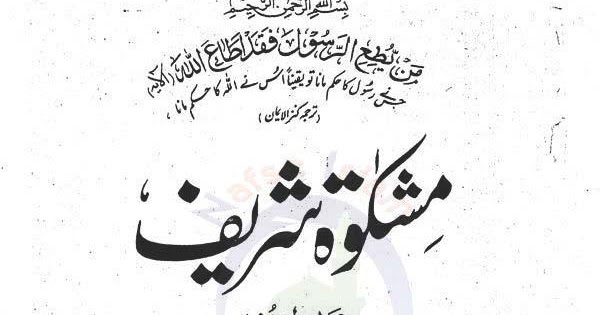 بسم الله الرحمن الرحيم
مَنْ يُّطِعِ الرَّسُوْلَ فَقَدْ اَطَاعَ اللّٰهَ (الآیہ)
جس نے رسول کا حکم مانا تو یقیناً اُس نے اللہ کا حکم مانا،
(ترجمہ کنز الایمان)
مِشکوٰۃ شریف